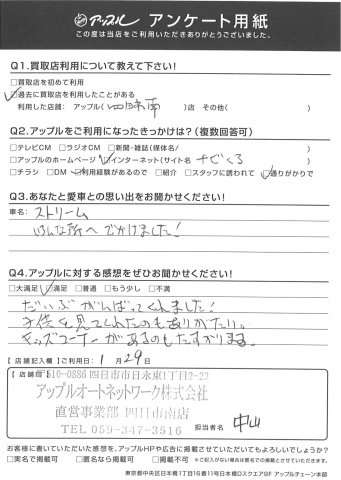 アップル アンケート用紙
この度は当店をご利用いただきありがとうございました。
Q1.買取店利用について教えて下さい!
□買取店を初めて利用
☑過去に買取店を利用したことがある
利用した店舗: アップル(四日市南)店 その他( )
Q2.アップルをご利用になったきっかけは?(複数回答可)
□テレビCM □ラジオCM □新聞・雑誌(媒体名/ )
□アップルのホームページ ☑インターネット(サイト名 なびくる )
□チラシ □DM ☑利用経験があるので □紹介 □スタッフに誘われて ☑通りがかりで
Q3.あなたと愛車との思い出をお聞かせください!
車名: ストリーム
いろんな所へでかけました!
Q4.アップルに対する感想をぜひお聞かせください!
□大満足 ☑満足 □普通 □もう少し □不満
だいぶがんばってくれました!
子供を見てくれたのもありがたい。
キッズコーナーがあるのもたすかります。
【 店舗記入欄 】ご利用日: 1月29日
【 店舗 510-0886 四日市市日永東1丁目2-23
アップルオートネットワーク株式会社
直営事業部 四日市南店
TEL 059-347-3516
担当者名 中山
お客様に書いていただいた感想を、アップルHPや広告に掲載させていただいてもよろしいでしょうか?
□実名で掲載可 □匿名なら掲載可 □掲載不可 ※ご記入がない場合は匿名での掲載とさせていただきます。
東京都中央区日本橋1丁目16番11号日本橋Dスクエア9F アップルチェーン本部